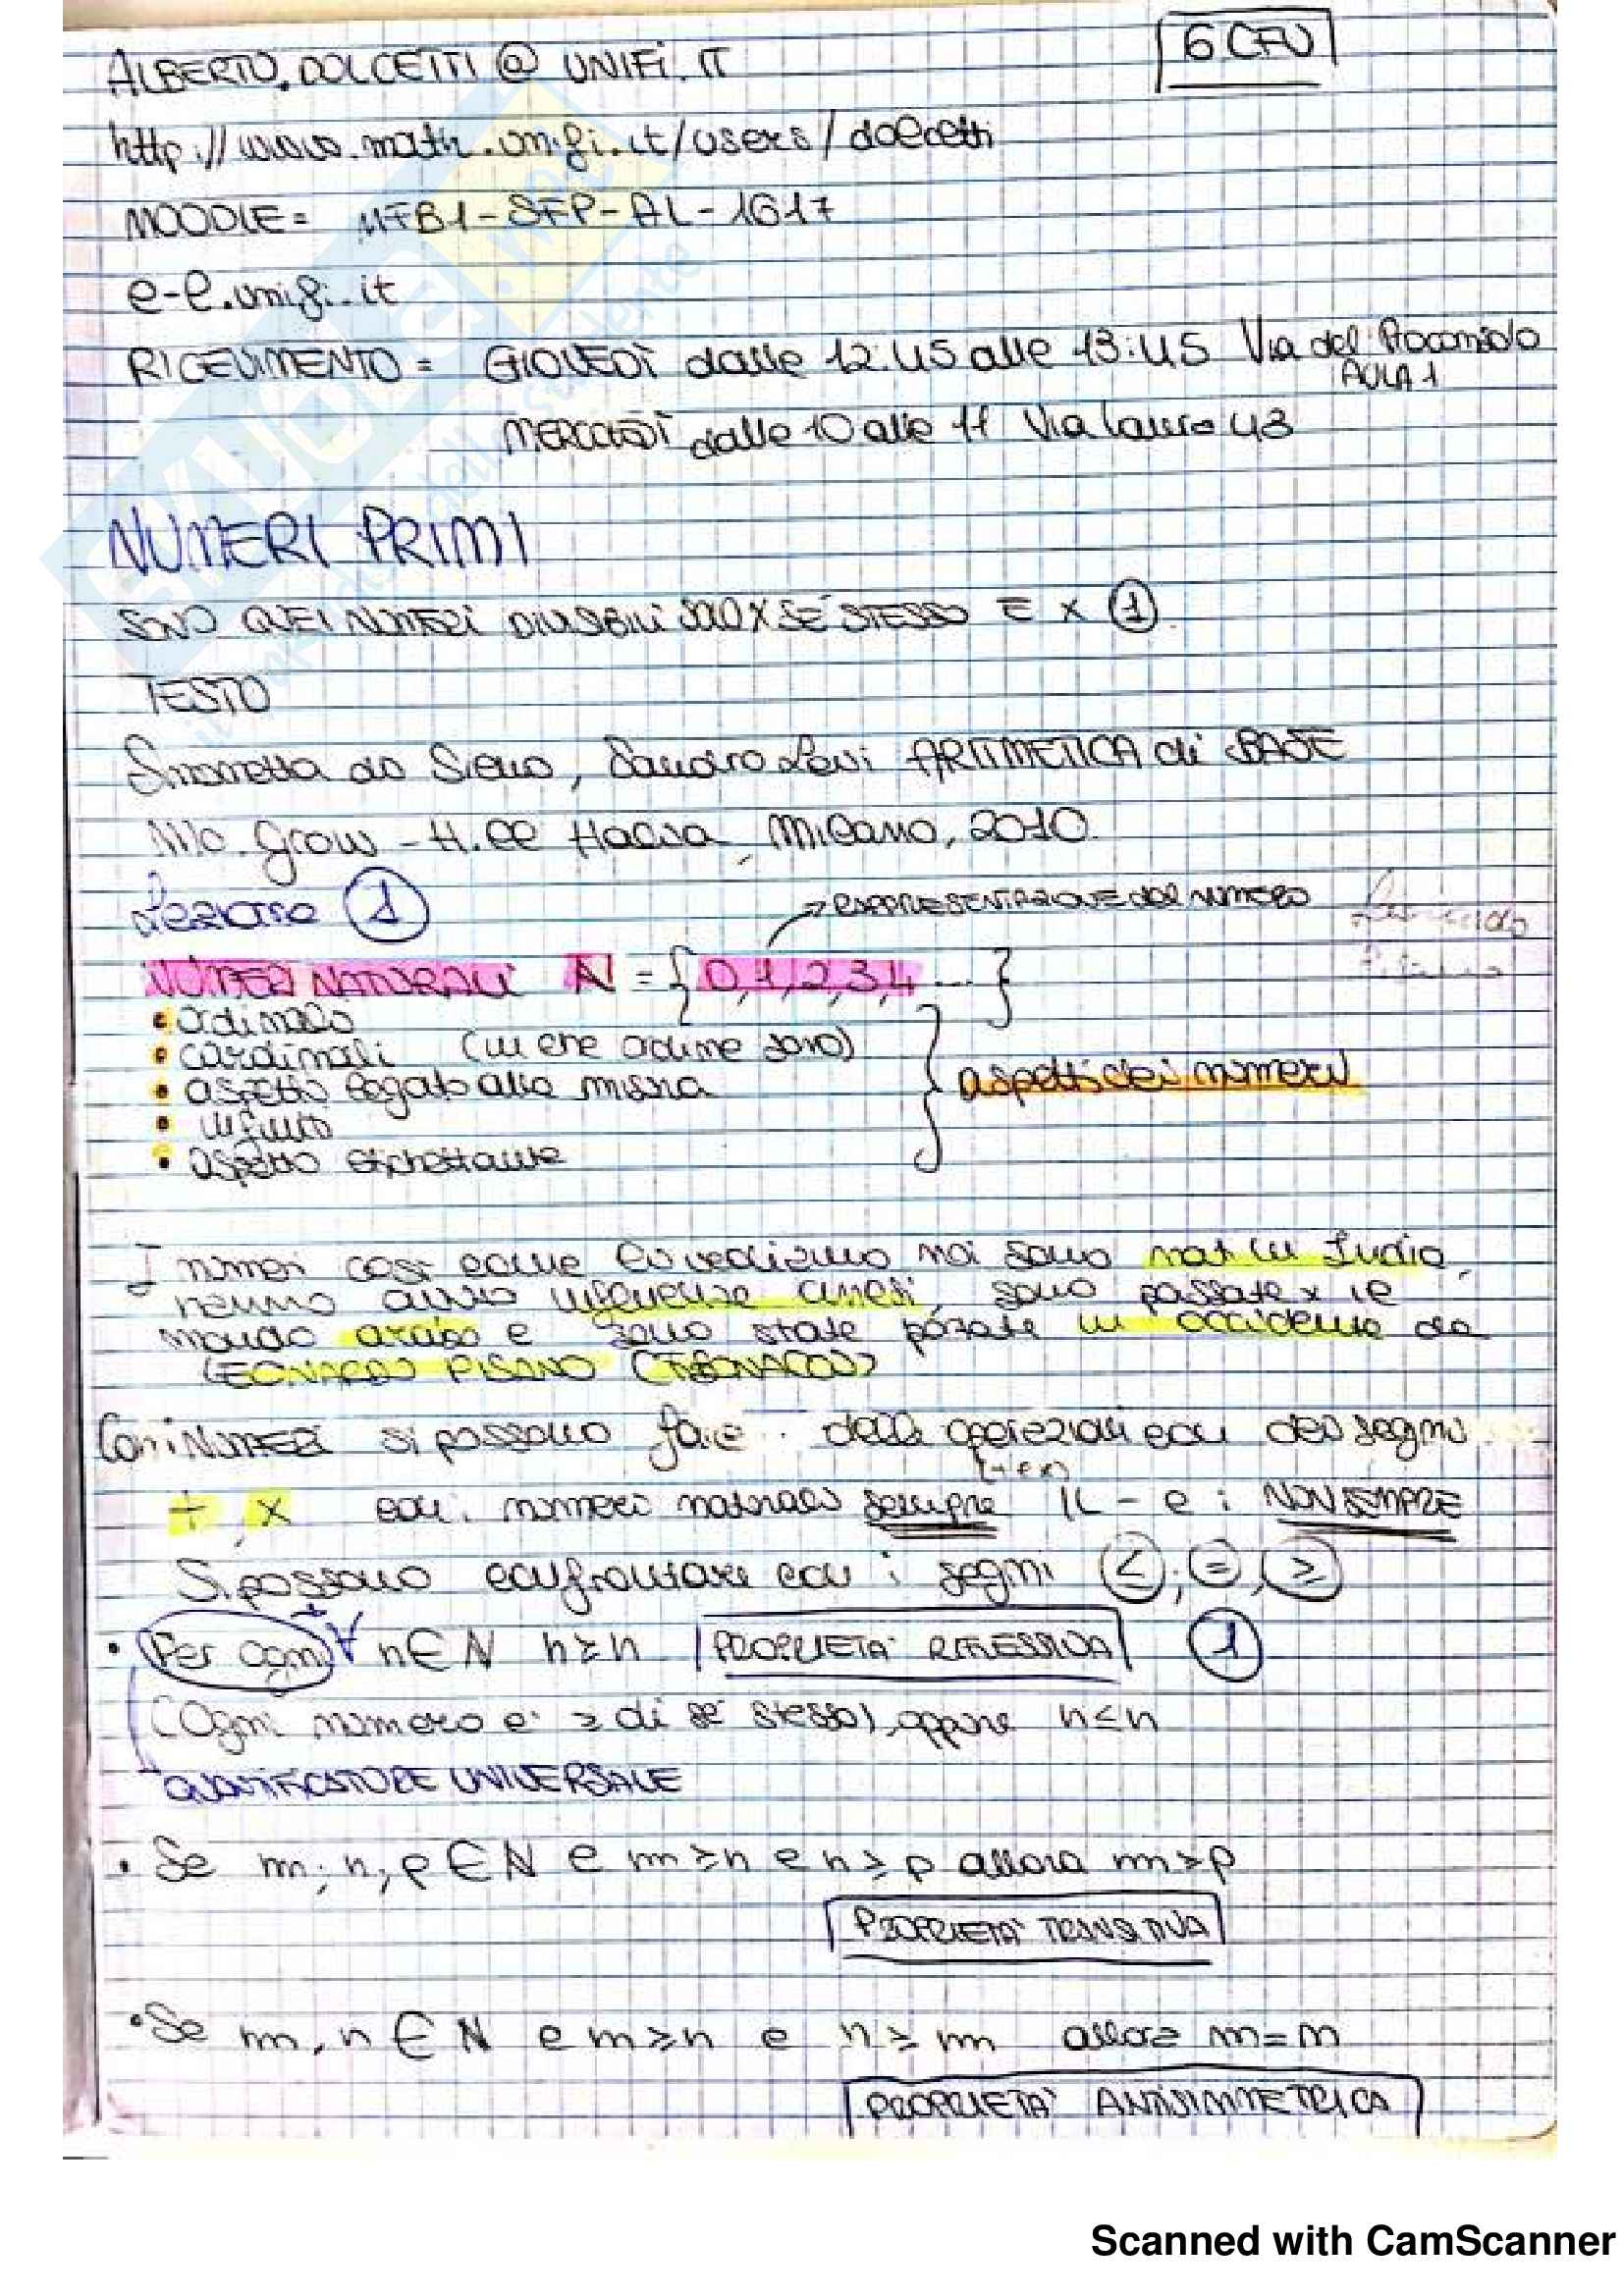 6 CFU
ALBERTO.DOLCETTI @ UNIFI.IT
http://www.math.unifi.it/users/dolcetti
MOODLE = MFB1-SFP-AL-1617
e-l.unifi.it
RICEVIMENTO = GIOVEDÌ dalle 12:45 alle 13:45 Via del
AULA 1
MERCOLEDÌ dalle 10 alle 11 Via Laura 48
NUMERI PRIMI
SONO QUEI NUMERI DIVISIBILI SOLO X SÉ STESSO E X 1.
TESTO
Simonetta di Sieno, Sandro Levi ARITMETICA di BASE
Mc. Grow - Hill Italia, Milano, 2010.
Lezione 1
RAPPRESENTAZIONE DEL NUMERO
Leonardo
Pisano
NUMERI NATURALI N = {0,1,2,3,4 ...}
• ordinale
• cardinali (in che ordine sono)
• aspetto legato alla misura
• infinito
• aspetto etichettante
aspetti dei numeri
I numeri così come li vediamo noi sono nati in India,
hanno avuto influenze cinesi, sono passate x il
mondo arabo e sono state portate in occidente da
LEONARDO PISANO (FIBONACCI)
Con i NUMERI si possono fare delle operazioni con dei segni
(+ e x)
+, x con i numeri naturali sempre IL - e : NON SEMPRE
Si possono confrontare con i segni ≤; =, ≥
• Per ogni ∀ n∈N n≥n PROPRIETÀ RIFLESSIVA 1
(Ogni numero è ≥ di sé stesso), oppure n≤n
QUANTIFICATORE UNIVERSALE
• Se m, n, p ∈ N e m≥n e n≥p allora m≥p
PROPRIETÀ TRANSITIVA
• Se m, n ∈ N e m≥n e n≥m allora m=n
PROPRIETÀ ANTISIMMETRICA
SKUOLA.me
Scanned with CamScanner